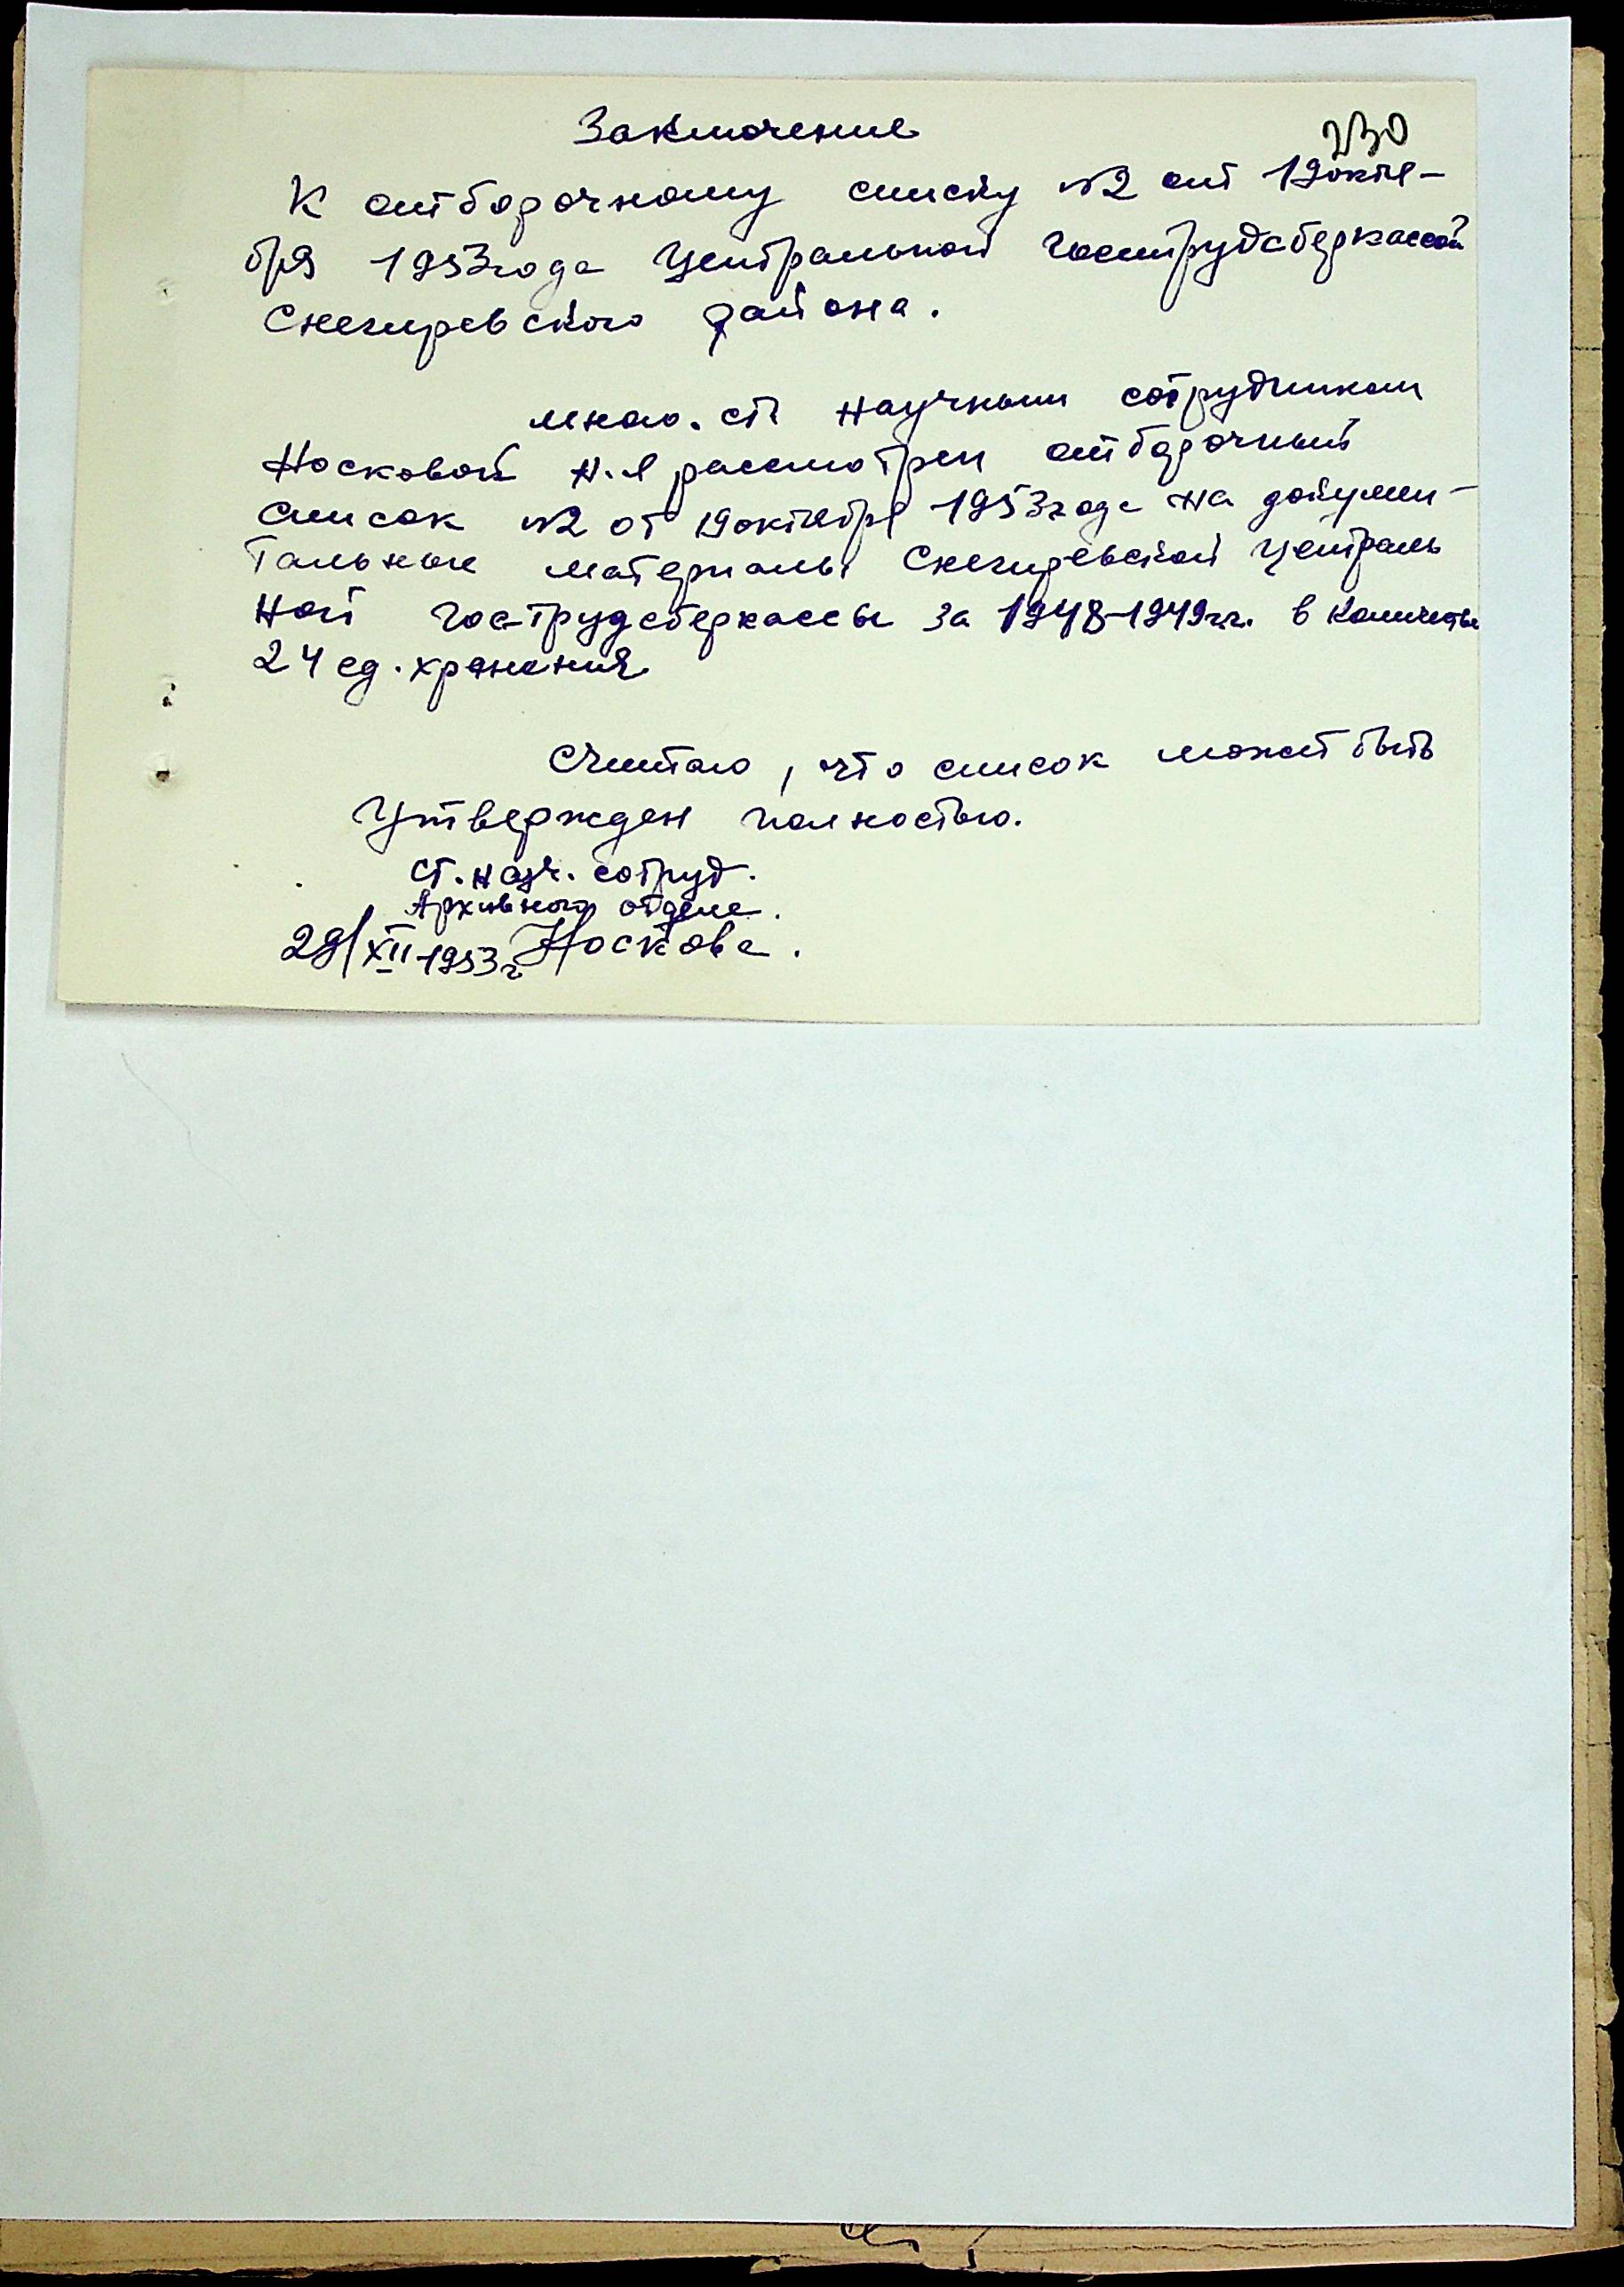 230
Заключение
К отборочному списку №2 от 19 октя-
бря 1953 года Центральной гострудсберкассой
Снегиревского района.
Мною. ст научным сотрудником
Носковой Н.Я рассмотрен отборочный
список №2 от 19 октября 1953 года на докумен-
тальные материалы Снегиревской Централь
ной гострудсберкассы за 1948-1949 гг. в количестве
24 ед. хранения
Считаю, что список может быть
утвержден полностью.
Ст. науч. сотруд.
Архивного отдела.
29/XII-1953 г Носкова.